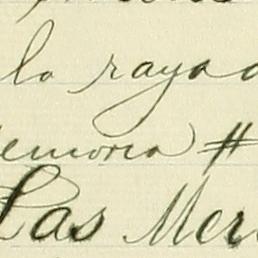 lo rayad
emoria #
Las Mer